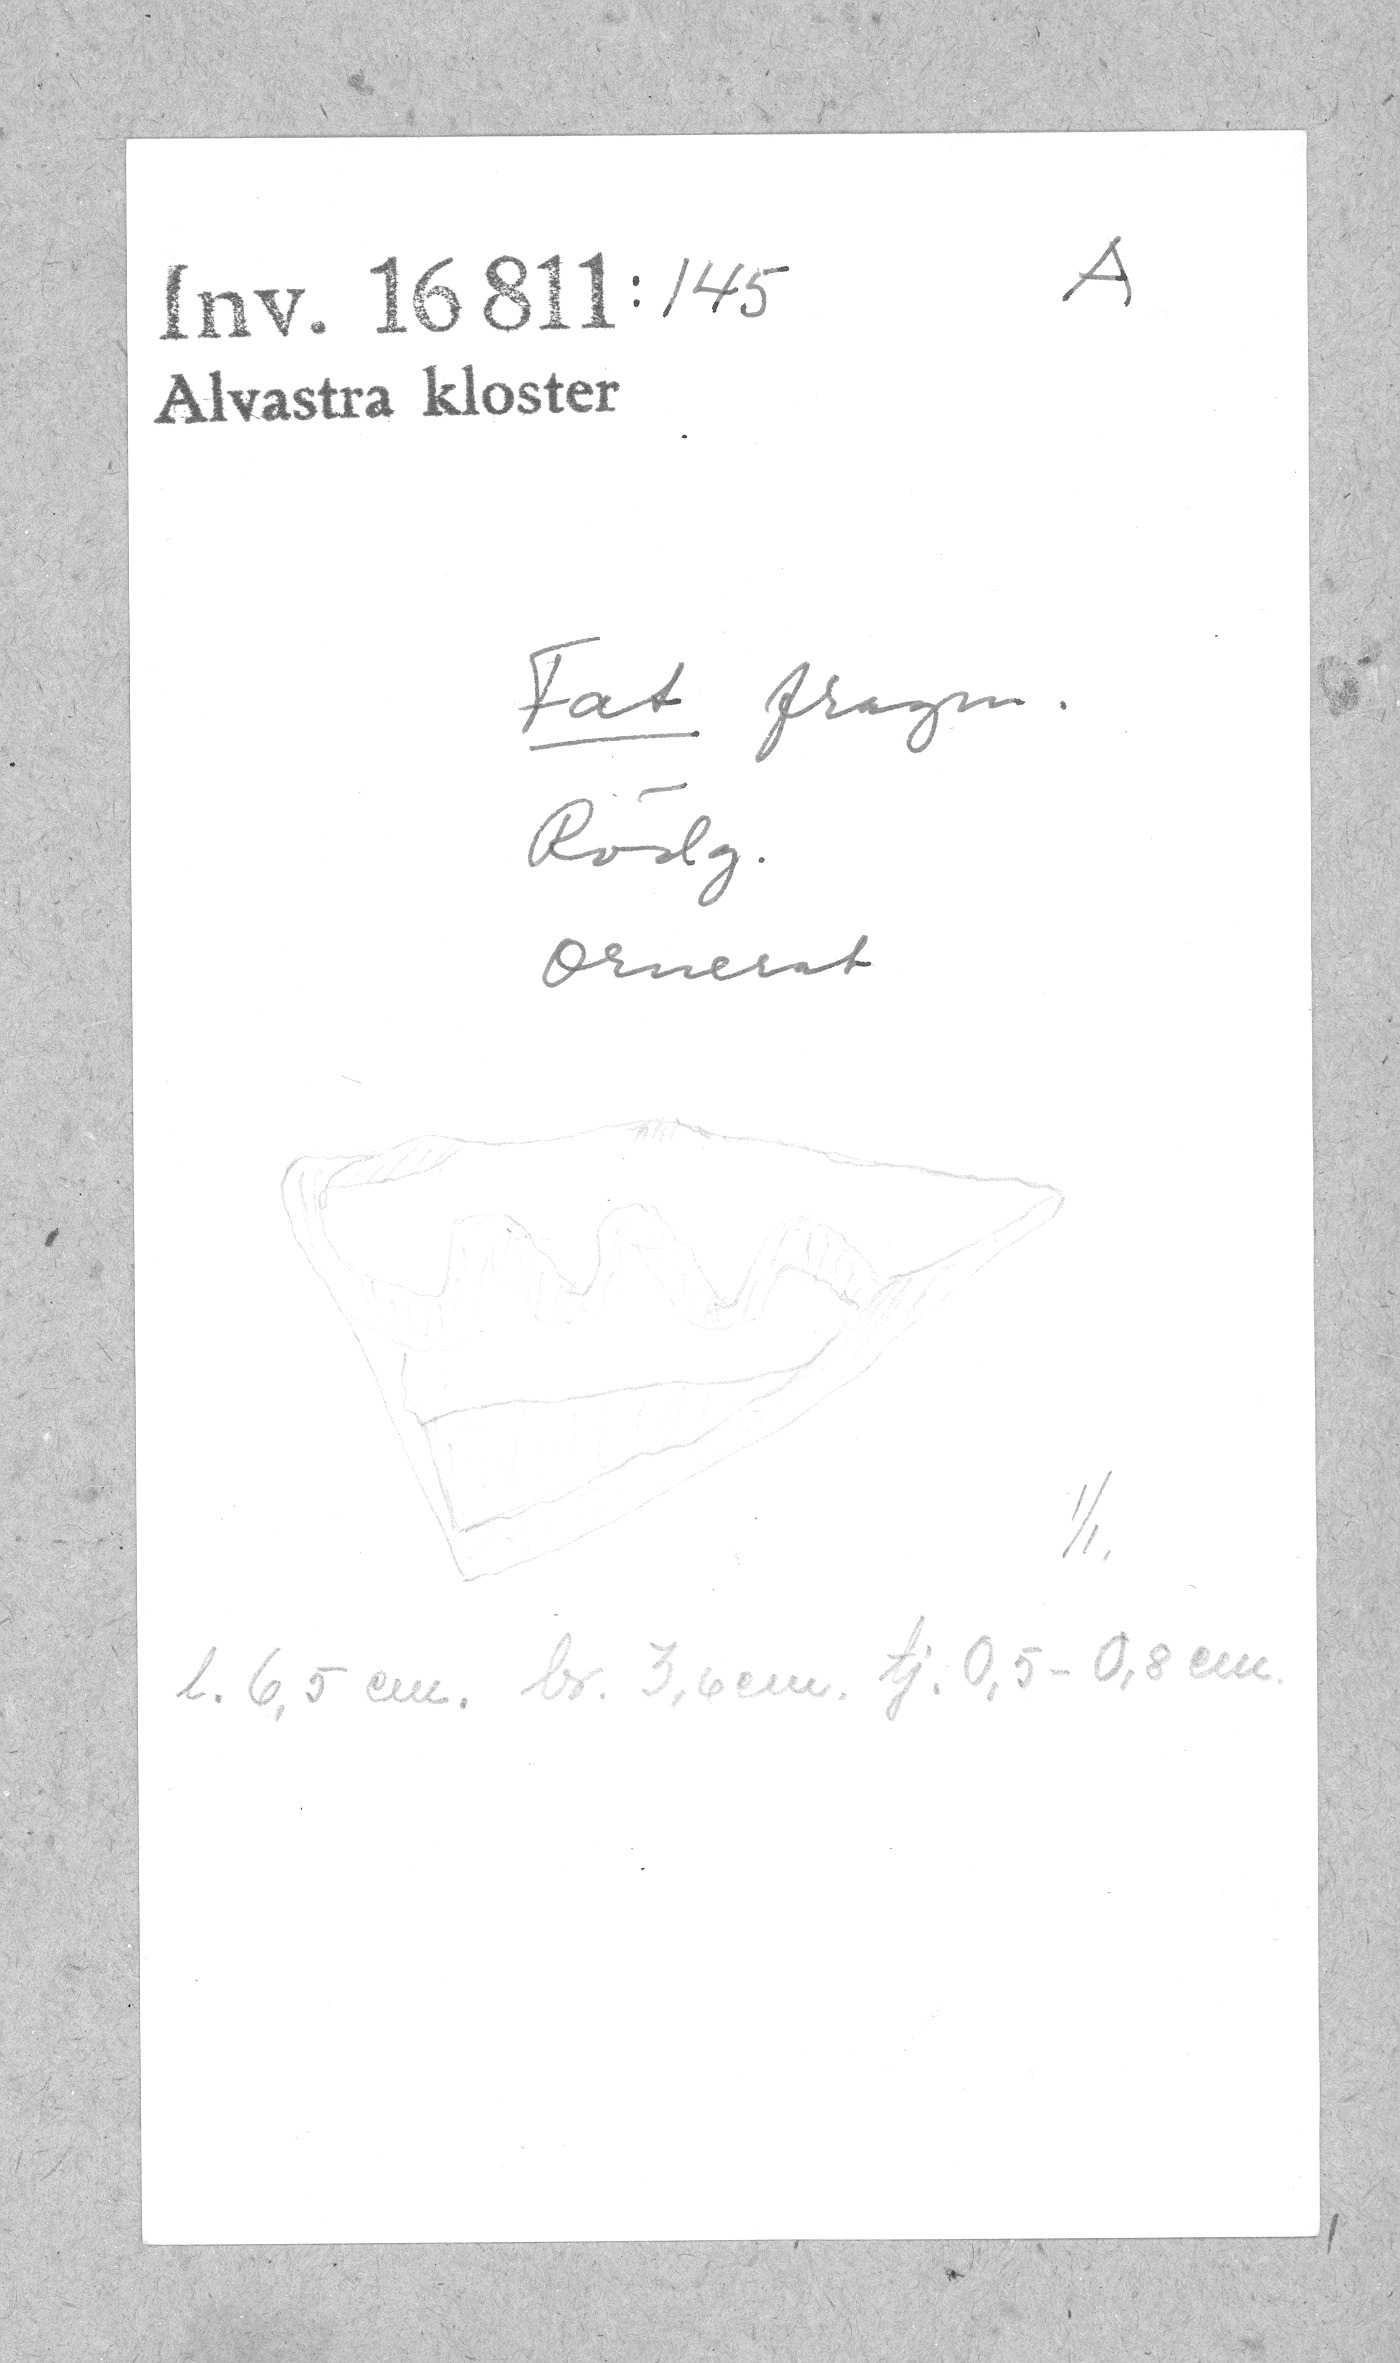 Inv. 16 811:145 A
Alvastra kloster
Fat fragm.
Rödg.
Ornerat
1/1.
l. 6,5 cm. br. 3,6 cm. tj. 0,5 - 0,8 cm.